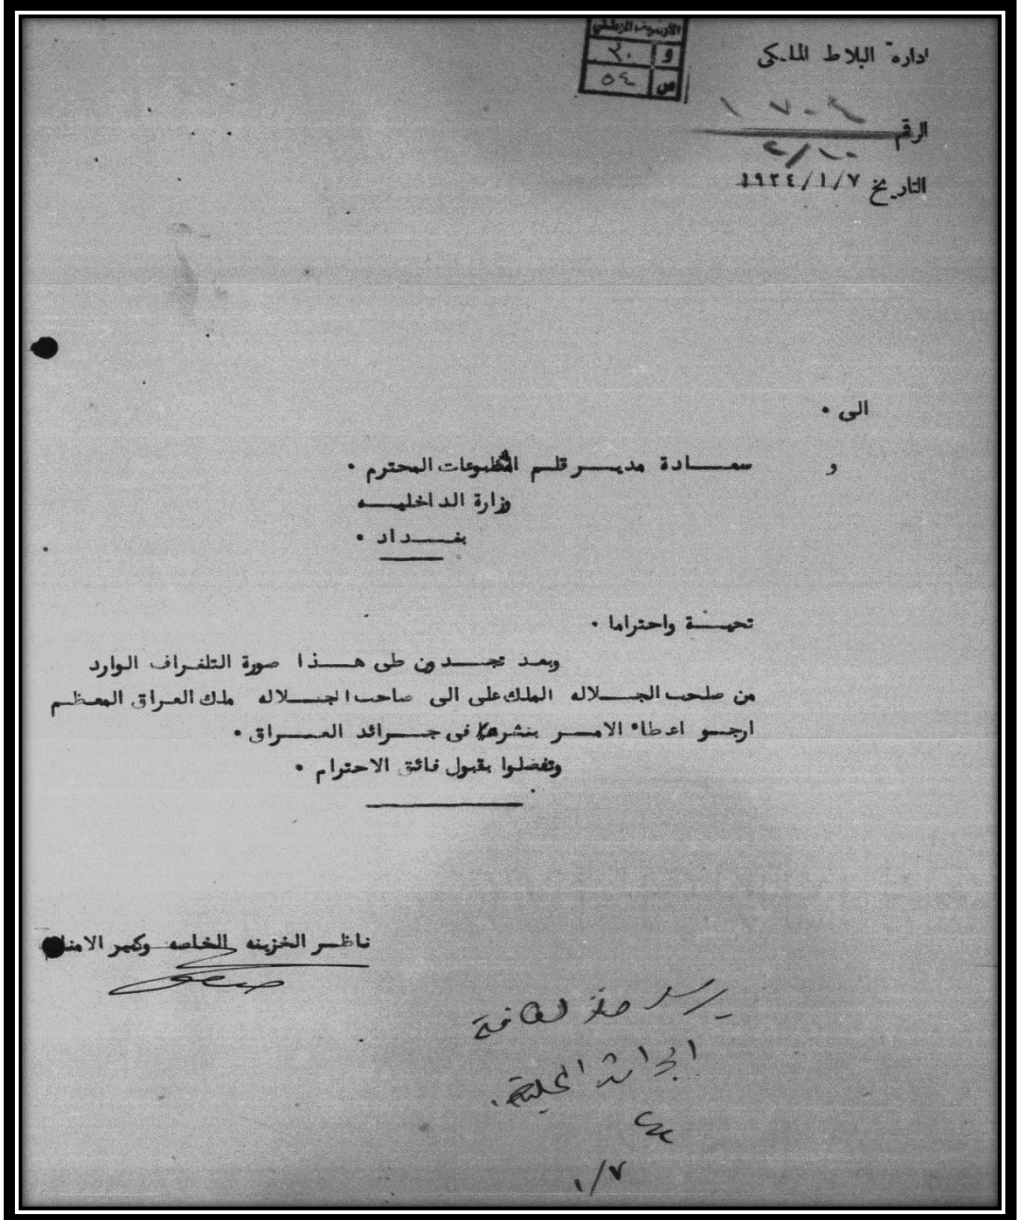 الارشيف الوطني
و ٢٠
ص ٥٤
ادارة البلاط الملكي
الرقم
التاريخ ١٩٢٤/١/٧
الى •
و سعـــادة مديـــر قلــم المطبوعات المحترم •
وزارة الداخليـــه
بغـــداد •
تحيـــة واحتراما •
وبعد تجـــدون طى هـــذا صورة التلغراف الوارد
من صلحب الجـــلاله الملك على الى صاحب الجـــلاله ملك العراق المعظم
ارجـــو اعطاء الامـــر بنشرها فى جـــرائد العـــراق •
وتفضلوا بقبول فائق الاحترام •
ناظـر الخزينه الخاصه وكبير الامناء
الجرائد المحلية.
١/٧